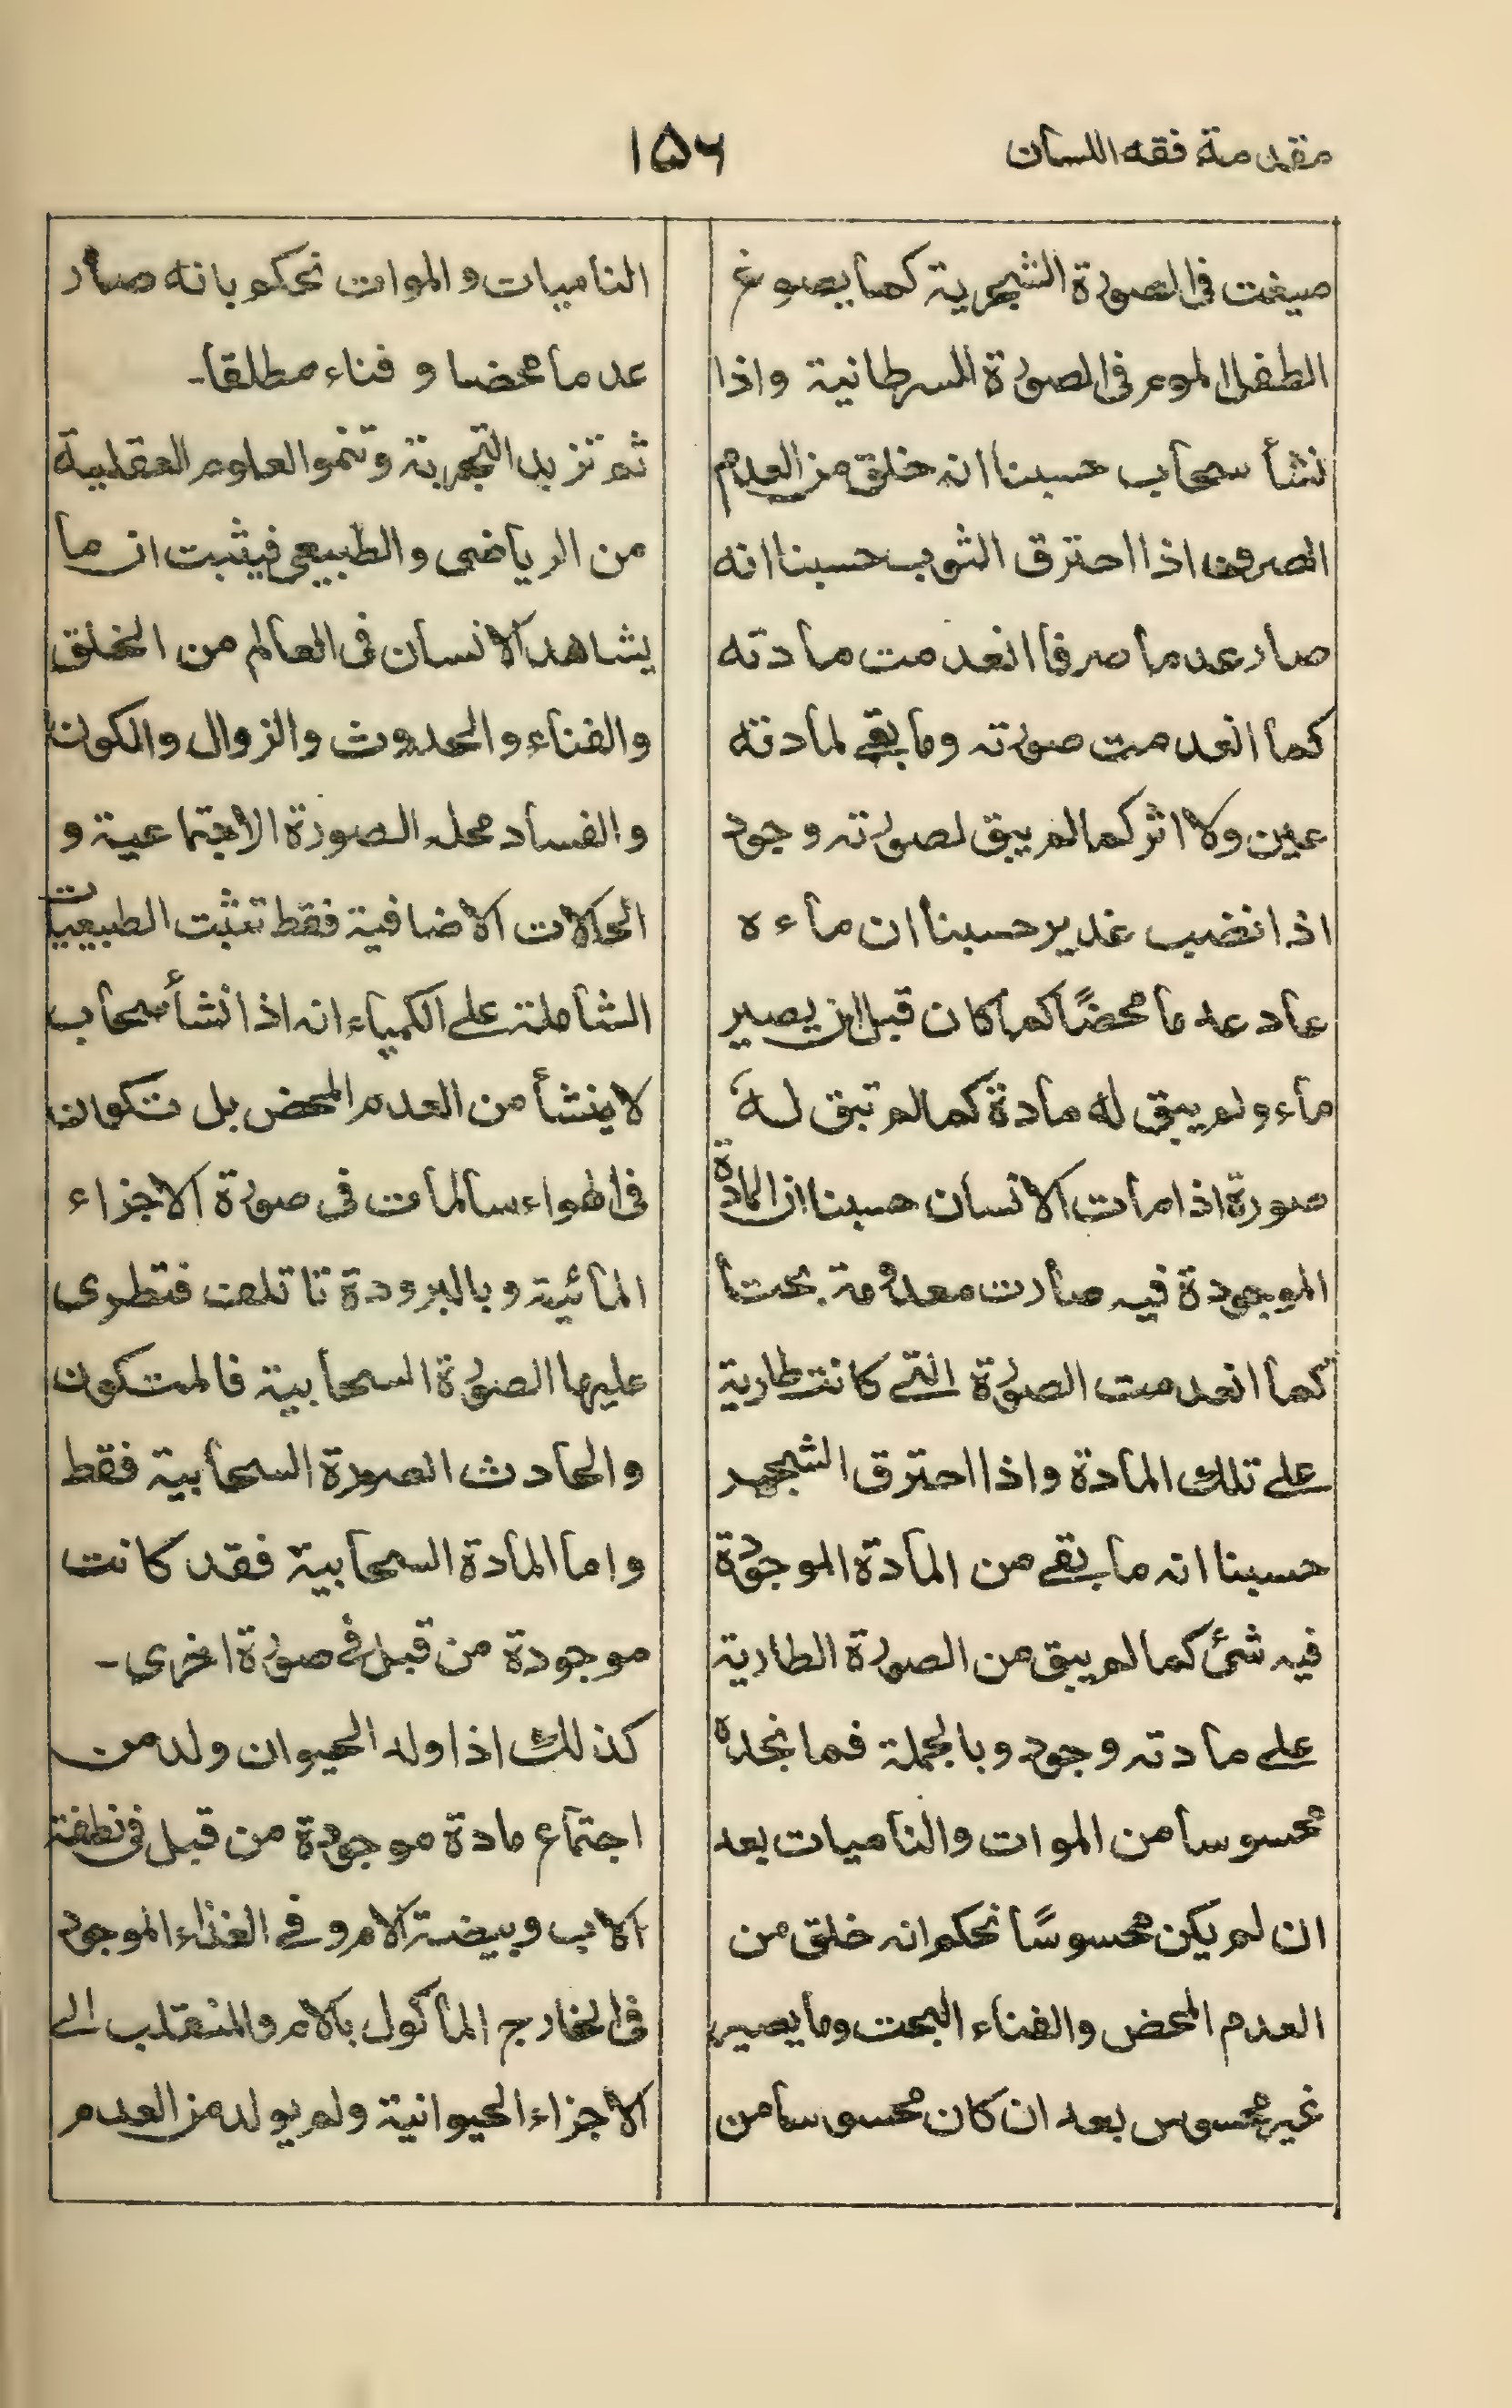 مقدمة فقه اللسان
۱۵۶
صيغت فى الصورة الشجرية كما يصوغ
الطفل الموم فى الصورة السرطانية واذا
نشأ سحاب حسبنا انه خلق من العدم
الصرف اذا احترق الثوب حسبنا انه
صار عدما صرفا انعدمت مادته
كما انعدمت صورته وما بقى لمادته
عين ولا اثر كما لم يبق لصورته وجود
اذا نضب غدير حسبنا ان ماءه
عاد عدما محضًا كما كان قبل ان يصير
ماء ولم يبق له مادة كما لم تبق له
صورة اذا مات الانسان حسبنا ان المادة
الموجودة فيه صارت معدومة بحتا
كما انعدمت الصورة التى كانت طارية
على تلك المادة واذا احترق الشجر
حسبنا انه ما بقى من المادة الموجودة
فيه شئ كما لم يبق من الصورة الطارية
على مادته وجود وبالجملة فما نجده
محسوسا من الموات والناميات بعد
ان لم يكن محسوسًا نحكم انه خلق من
العدم المحض والفناء البحت وما يصير
غير محسوس بعد ان كان محسوسا من
الناميات والموات نحكم بانه صار
عدما محضا و فناء مطلقا-
ثم تزيد التجربة وتنمو العلوم العقلية
من الرياضى والطبيعى فيثبت ان ما
يشاهد الانسان فى العالم من الخلق
والفناء والحدوث والزوال والكون
والفساد محله الصورة الاجتماعية و
الحالات الاضافية فقط تثبت الطبيعيات
الشاملة على الكمياء انه اذا نشأ سحاب
لا ينشأ من العدم المحض بل تكون
فى الهواء سالمات فى صورة الاجزاء
المائية وبالبرودة تاتلف فتطرى
عليها الصورة السحابية فالمتكون
والحادث الصورة السحابية فقط
واما المادة السحابية فقد كانت
موجودة من قبل فى صورة اخرى-
كذلك اذا ولد الحيوان ولد من
اجتماع مادة موجودة من قبل فى نطفة
الاب وبيضة الام و فى الغذاء الموجود
فى الخارج المأكول بالام والمنقلب الى
الاجزاء الحيوانية ولم يولد من العدم